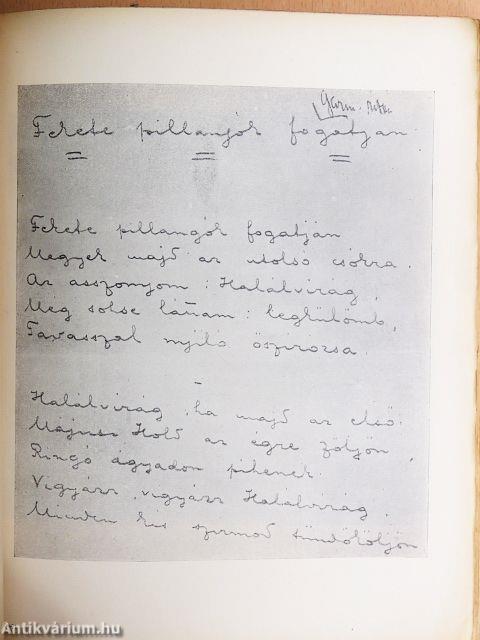 Garm.
Fekete pillangók fogatján
Fekete pillangók fogatján
Megyek majd az utolsó csókra.
Az asszonyom: Halálvirág,
Még sohse láttam: legkülömb,
Tavasszal nyiló őszirozsa.
–
Halálvirág, ha majd az első
Májusi Hold az égre zöljön,
Ringó ágyadon pihenek.
Vigyázz, vigyázz Halálvirág,
Minden kis szirmod tündököljön
Antikvárium.hu